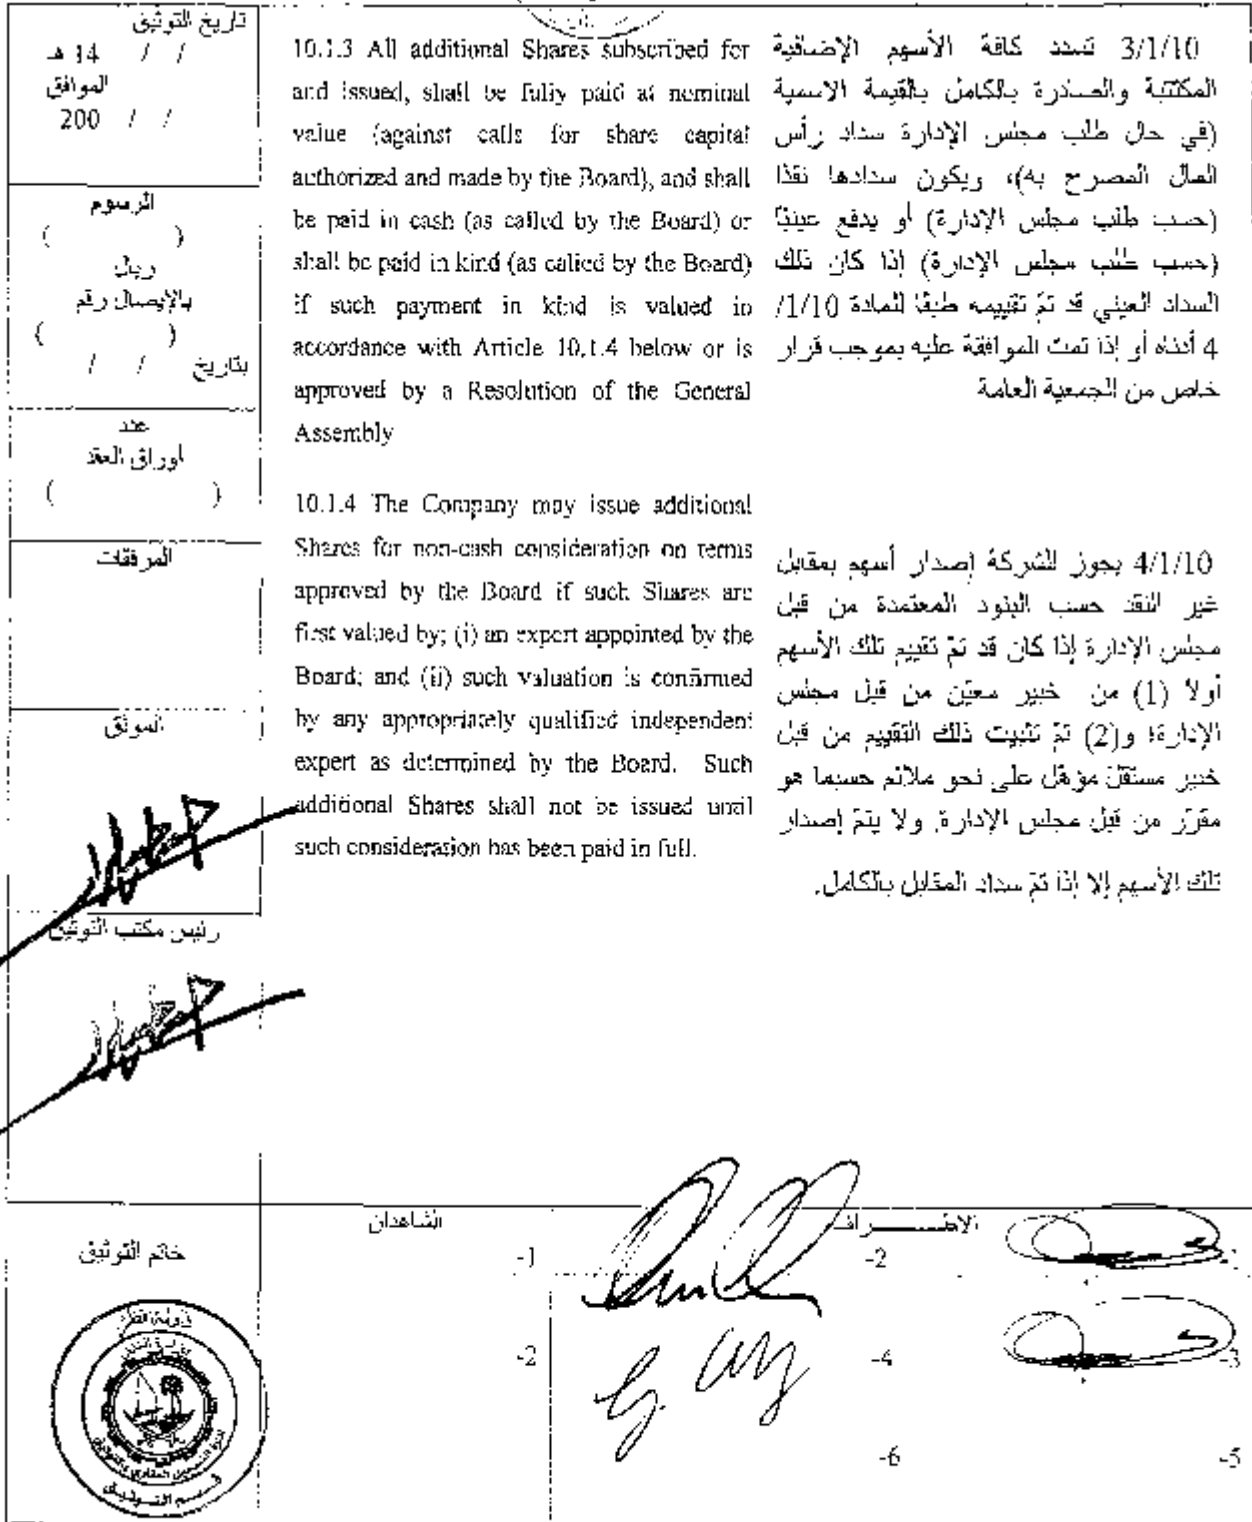 تاريخ التوثيق
/ / 14 هـ
الموافق
/ / 200
الرسوم
( )
ريال
بالإيصال رقم
( )
بتاريخ / /
عدد
أوراق العقد
( )
المرفقات
الموثق
رئيس مكتب التوثيق
10.1.3 All additional Shares subscribed for
and issued, shall be fully paid at nominal
value (against calls for share capital
authorized and made by the Board), and shall
be paid in cash (as called by the Board) or
shall be paid in kind (as called by the Board)
if such payment in kind is valued in
accordance with Article 10.1.4 below or is
approved by a Resolution of the General
Assembly
10.1.4 The Company may issue additional
Shares for non-cash consideration on terms
approved by the Board if such Shares are
first valued by; (i) an expert appointed by the
Board; and (ii) such valuation is confirmed
by any appropriately qualified independent
expert as determined by the Board. Such
additional Shares shall not be issued until
such consideration has been paid in full.
3/1/10 تسدد كافة الأسهم الإضافية
المكتتبة والصادرة بالكامل بالقيمة الاسمية
(في حال طلب مجلس الإدارة سداد رأس
المال المصرح به)، ويكون سدادها نقدا
(حسب طلب مجلس الإدارة) أو يدفع عينيًا
(حسب طلب مجلس الإدارة) إذا كان ذلك
السداد العيني قد تمّ تقييمه طبقًا للمادة 1/10/
4 أدناه أو إذا تمت الموافقة عليه بموجب قرار
خاص من الجمعية العامة
4/1/10 يجوز للشركة إصدار أسهم بمقابل
غير النقد حسب البنود المعتمدة من قبل
مجلس الإدارة إذا كان قد تمّ تقييم تلك الأسهم
أولا (1) من خبير معيّن من قبل مجلس
الإدارة؛ و(2) تمّ تثبيت ذلك التقييم من قبل
خبير مستقلّ مؤهّل على نحو ملائم حسبما هو
مقرّر من قبل مجلس الإدارة. ولا يتمّ إصدار
تلك الأسهم إلا إذا تمّ سداد المقابل بالكامل.
خاتم التوثيق
الشاهدان
الاطـــــراف
-1
-2
-2
-4
-3
-6
-5
دولة قطر
قسم التوثيق